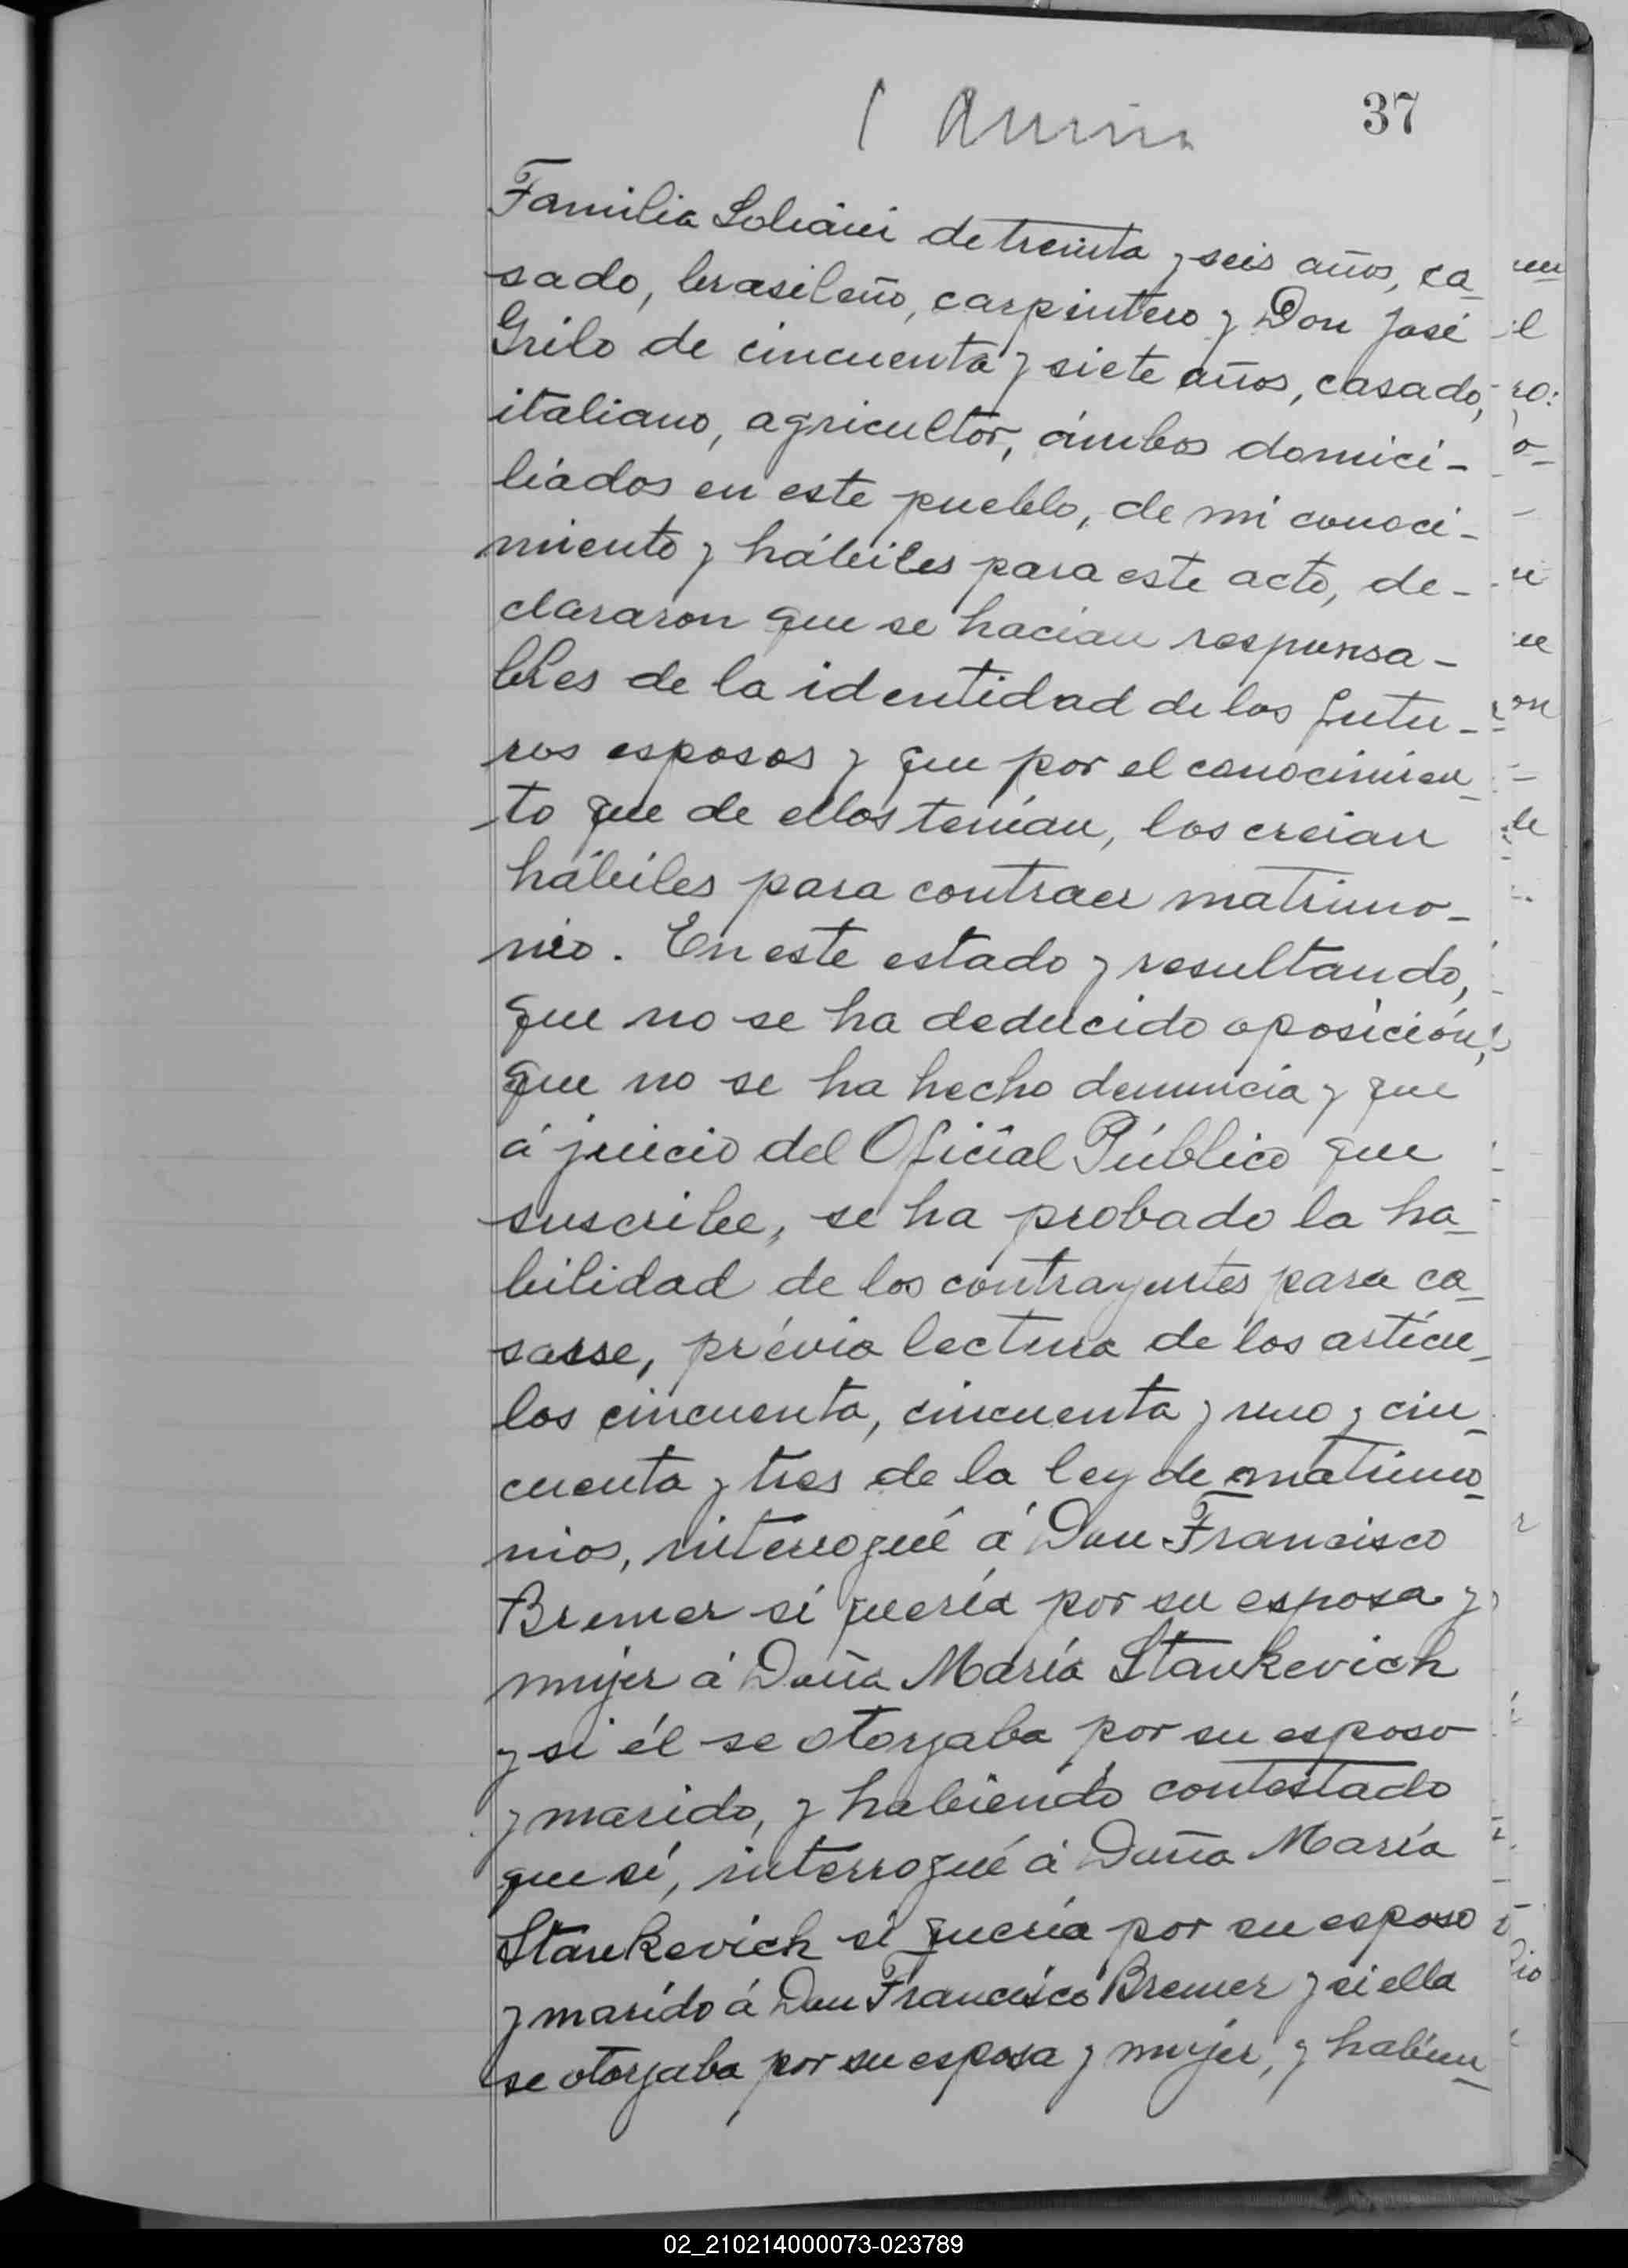 37
Familia Soliani de treinta y seis años, ca_
sado, brasileño, carpintero y Don José
Grilo de cincuenta y siete años, casado,
italiano, agricultor, ámbos domici-
liádos en este pueblo, de mi conoci-
miento y hábiles para este acto, de-
clararon que se hacian responsa-
bles de la identidad de los futu-
ros esposos y que por el conocimien_
to que de ellos tenían, los creian
hábiles para contraer matrimo-
nio. En este estado y resultando,
que no se ha deducido oposición,
que no se ha hecho denuncia y que
á juicio del Oficial Público que
suscribe, se ha probado la ha_
bilidad de los contrayentes para ca_
sarse, prévia lectura de los artícu_
los cincuenta, cincuenta y uno y cin_
cuenta y tres de la ley de matrimo_
nios, interrogué á Don Francisco
Bremer si quería por su esposa y
mujer á Doña María Stankevich
y si él se otorgaba por su esposo
y marido, y habiendo contestado
que sí, interrogué á Doña María
Stankevich si quería por su esposo
y marido á Don Francisco Bremer y si ella
se otorgaba por su esposa y mujer, y habien_
02_210214000073-023789